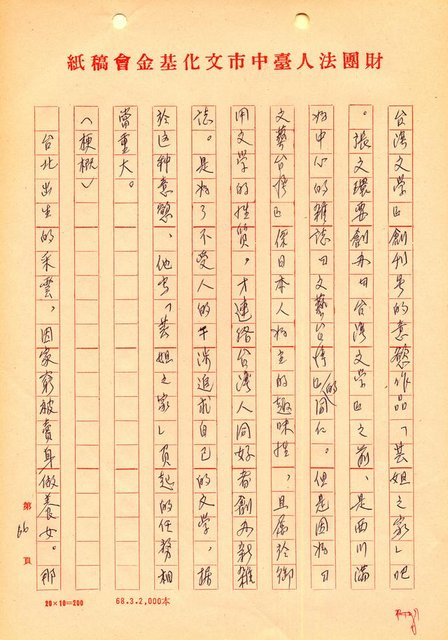 財團法人臺中市文化基金會稿紙
台灣文學』創刊号的意慾作品「芸妲之家」吧
。張文環要創办『台灣文学』之前、是西川滿
为中心的雜誌『文藝台灣』的同仁。但是因为『
文藝台灣』係日本人为主的趣味性，且屬於御
用文學的性質，才連絡台灣人同好者創办新雜
誌。是为了不受人的干涉追求自己的文学。据
於这种意慾、他寫「芸妲之家」負起的任務相
當重大。
（梗概）
台北出生的采雲，因家窮被賣身做養女。那
第66頁
20×10＝200
68.3.2,000本